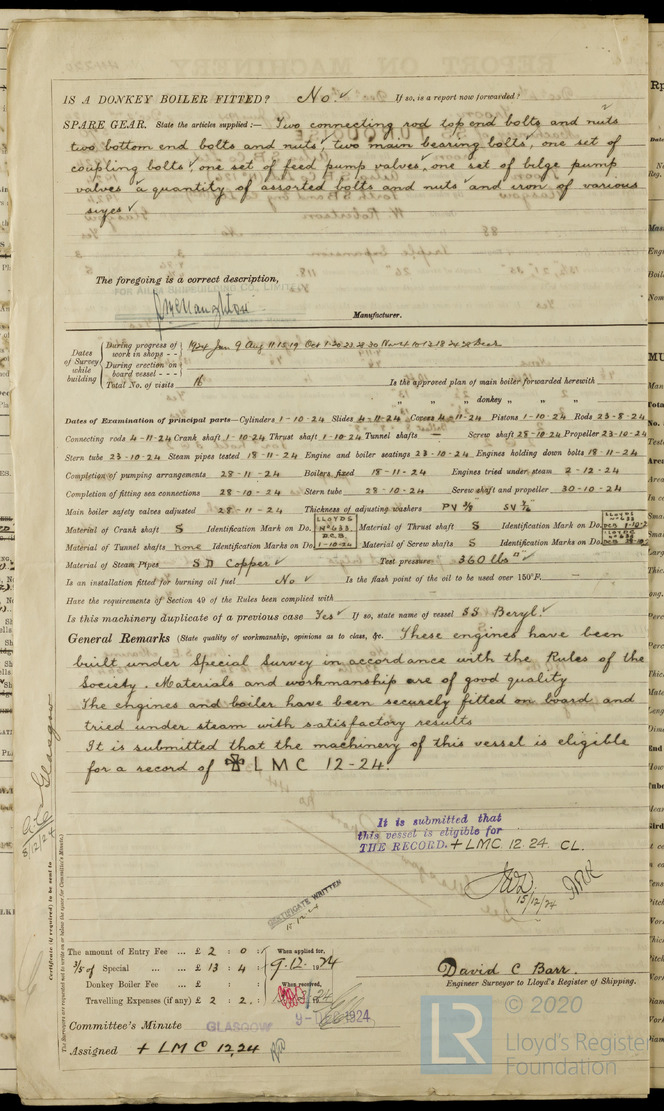 IS A DONKEY BOILER FITTED? No. ✓ If so, is a report now forwarded?
SPARE GEAR. State the articles supplied:— Two connecting rod top end bolts and nuts
two bottom end bolts and nuts, two main bearing bolts, one set of
coupling bolts, one set of feed pump valves, one set of bilge pump
valves a quantity of assorted bolts and nuts and iron of various
sizes ✓
The foregoing is a correct description,
FOR AILSA SHIPBUILDING CO., LIMITED
J. McNaughton Manufacturer.
Dates of Survey while building
During progress of work in shops - - 1924 Jan 9 Aug 11.15.19 Oct 1.20
During erection on board vessel - - -
Total No. of visits 16 Is the approved plan of main boiler forwarded herewith
" " " donkey " " "
Dates of Examination of principal parts—Cylinders 1-10-24 Slides 4-11-24 Covers 4-11-24 Pistons 1-10-24 Rods 23-8-24
Connecting rods 4-11-24 Crank shaft 1-10-24 Thrust shaft 1-10-24 Tunnel shafts — Screw shaft 28-10-24 Propeller 23-10-24
Stern tube 23-10-24 Steam pipes tested 18-11-24 Engine and boiler seatings 23-10-24 Engines holding down bolts 18-11-24
Completion of pumping arrangements 28-11-24 Boilers fixed 18-11-24 Engines tried under steam 2-12-24
Completion of fitting sea connections 28-10-24 Stern tube 28-10-24 Screw shaft and propeller 30-10-24
Main boiler safety valves adjusted 28-11-24 Thickness of adjusting washers PV 3/8 SV
Material of Crank shaft S Identification Mark on Do. LLOYDS No 633 D.C.B. 1-10-24 Material of Thrust shaft S Identification Mark on Do. LLOYDS No 633 DCB 1-10-2
Material of Tunnel shafts none Identification Marks on Do. Material of Screw shafts S Identification Marks on Do.
Material of Steam Pipes SD Copper ✓ Test pressure 360 lbs □" ✓
Is an installation fitted for burning oil fuel No ✓ Is the flash point of the oil to be used over 150°F. —
Have the requirements of Section 49 of the Rules been complied with —
Is this machinery duplicate of a previous case Yes ✓ If so, state name of vessel SS Beryl. ✓
General Remarks (State quality of workmanship, opinions as to class, &c. These engines have been
built under Special Survey in accordance with the Rules of the
Society. Materials and workmanship are of good quality
The engines and boiler have been securely fitted on board and
tried under steam with satisfactory results
It is submitted that the machinery of this vessel is eligible
for a record of ✠ LMC 12-24.
It is submitted that
this vessel is eligible for
THE RECORD. + LMC 12.24. CL.
15/12/24
CERTIFICATE WRITTEN
15.12.24
Certificate (if required) to be sent to
Glasgow
(The Surveyors are requested not to write on or below the space for Committee's Minute.)
The amount of Entry Fee ... £ 2 : 0 : When applied for,
3/5 of Special ... ... £ 13 : 4 : 9.12.1924
Donkey Boiler Fee ... £ : : When received,
Travelling Expenses (if any) £ 2 : 2. :
David C Barr.
Engineer Surveyor to Lloyd's Register of Shipping.
Committee's Minute GLASGOW 9-DEC 1924
Assigned + LMC 12,24
© 2020
LR
Lloyd's Register
Foundation